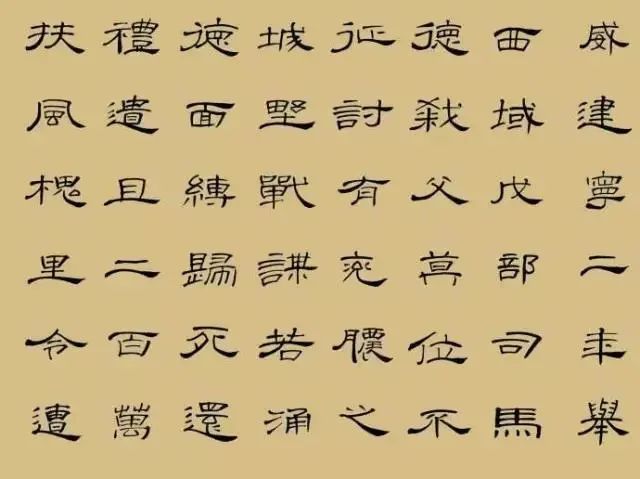 威建寧二年舉
西域戊部司馬
德弒父篡位不
征討有兗膿之
城野戰謀若涌
德面縛歸死還
禮遺且二百萬
扶風槐里令遭